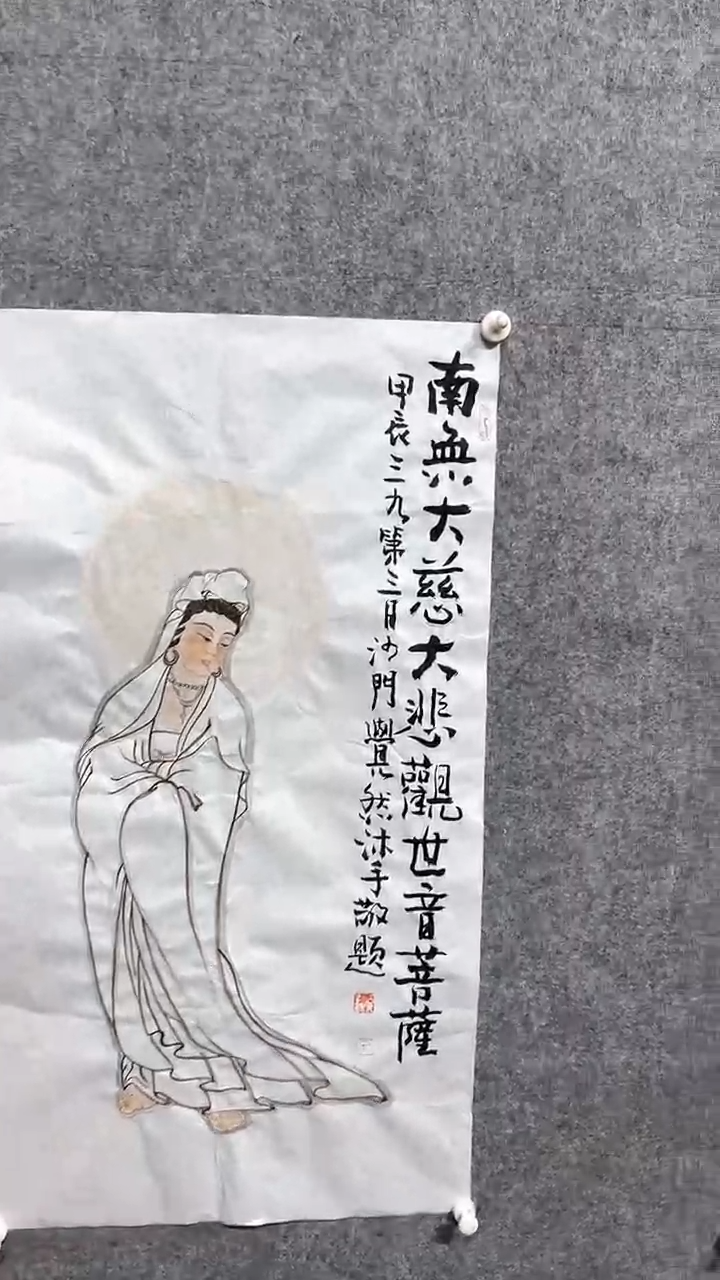 南無大慈大悲觀世音菩薩
甲辰三九第三日沙門覺然沐手敬題